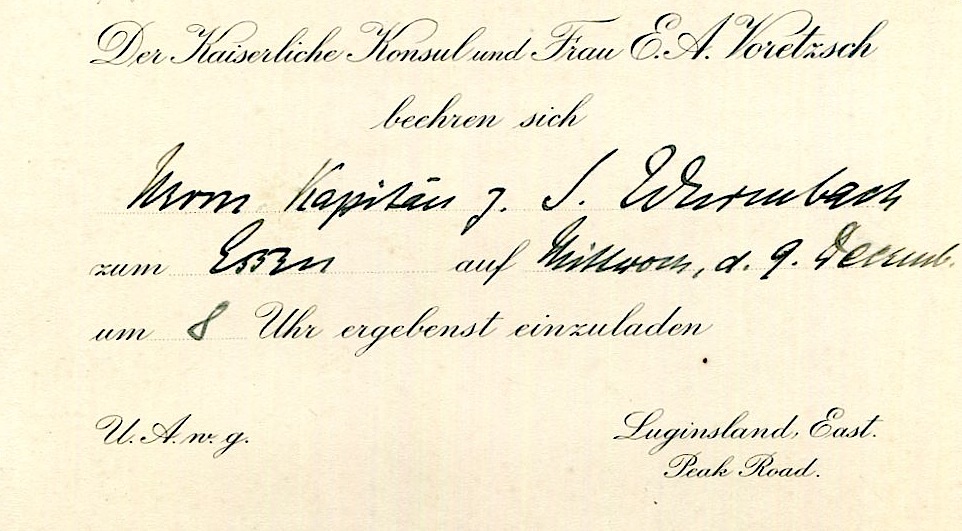 Der Kaiserliche Konsul und Frau E. A. Voretzsch
beehren sich
Herrn Kapitän z. S. Wurmbach
zum Essen auf Mittwoch, d. 9. Dezemb.
um 8 Uhr ergebenst einzuladen
U. A. w. g.
Luginsland, East.
Peak Road.